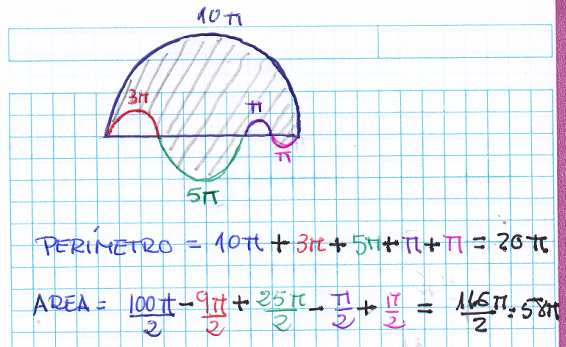 10π
3π
π
π
5π
PERÍMETRO = 10π + 3π + 5π + π + π = 20π
AREA = 100π/2 - 9π/2 + 25π/2 - π/2 + π/2 = 116π/2 = 58π